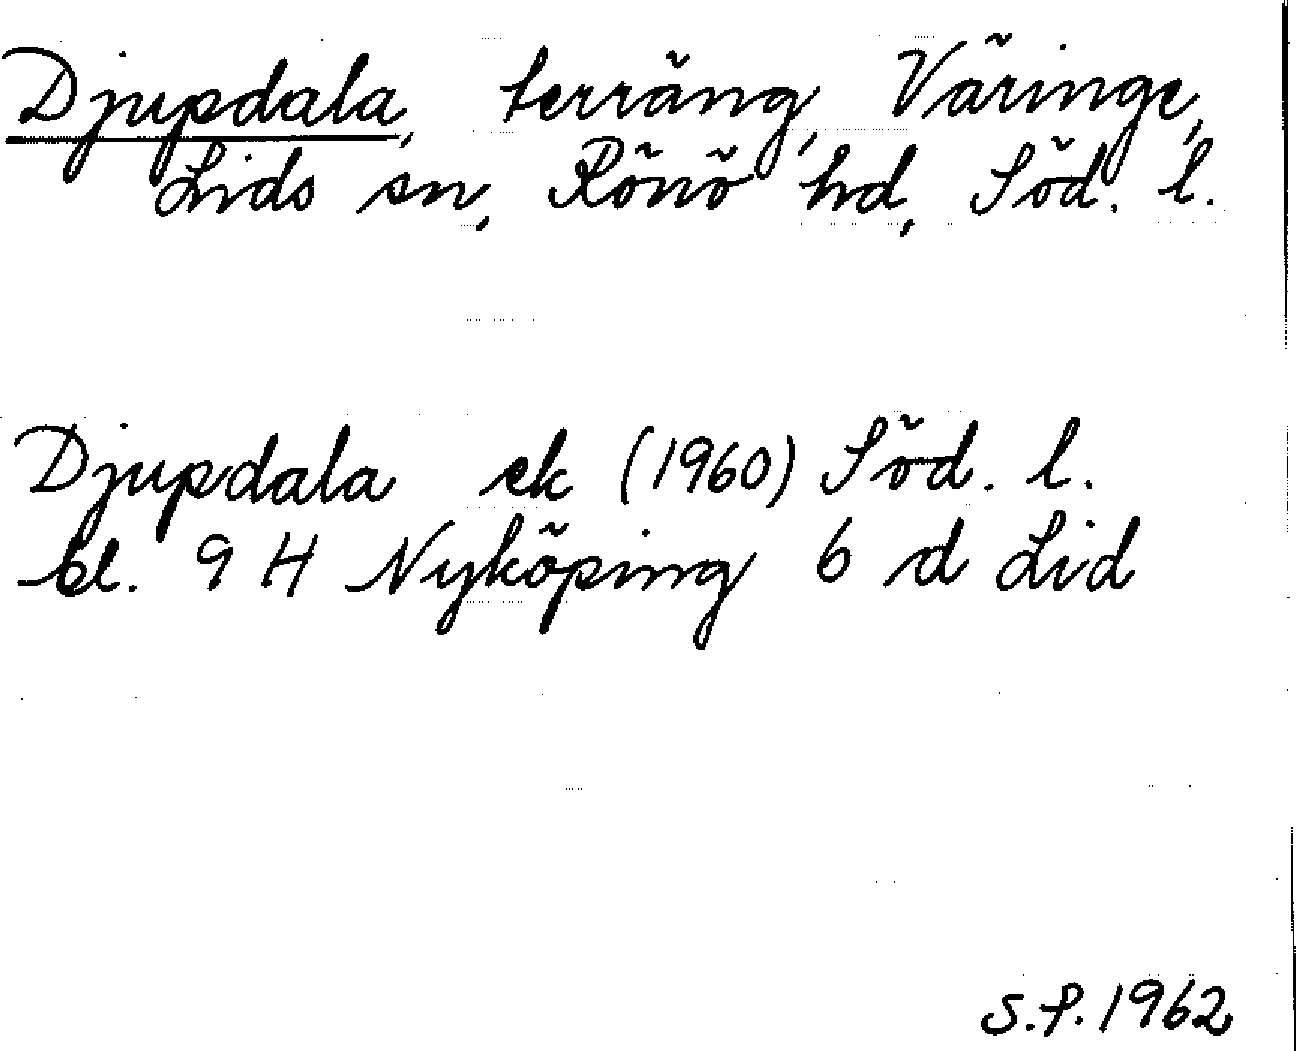 Djupdala, terräng, Väringe,
Lids sn, Rönö hd, Söd. l.
Djupdala ek (1960) Söd. l.
bl. 9 H Nyköping 6 d Lid
S.P. 1962